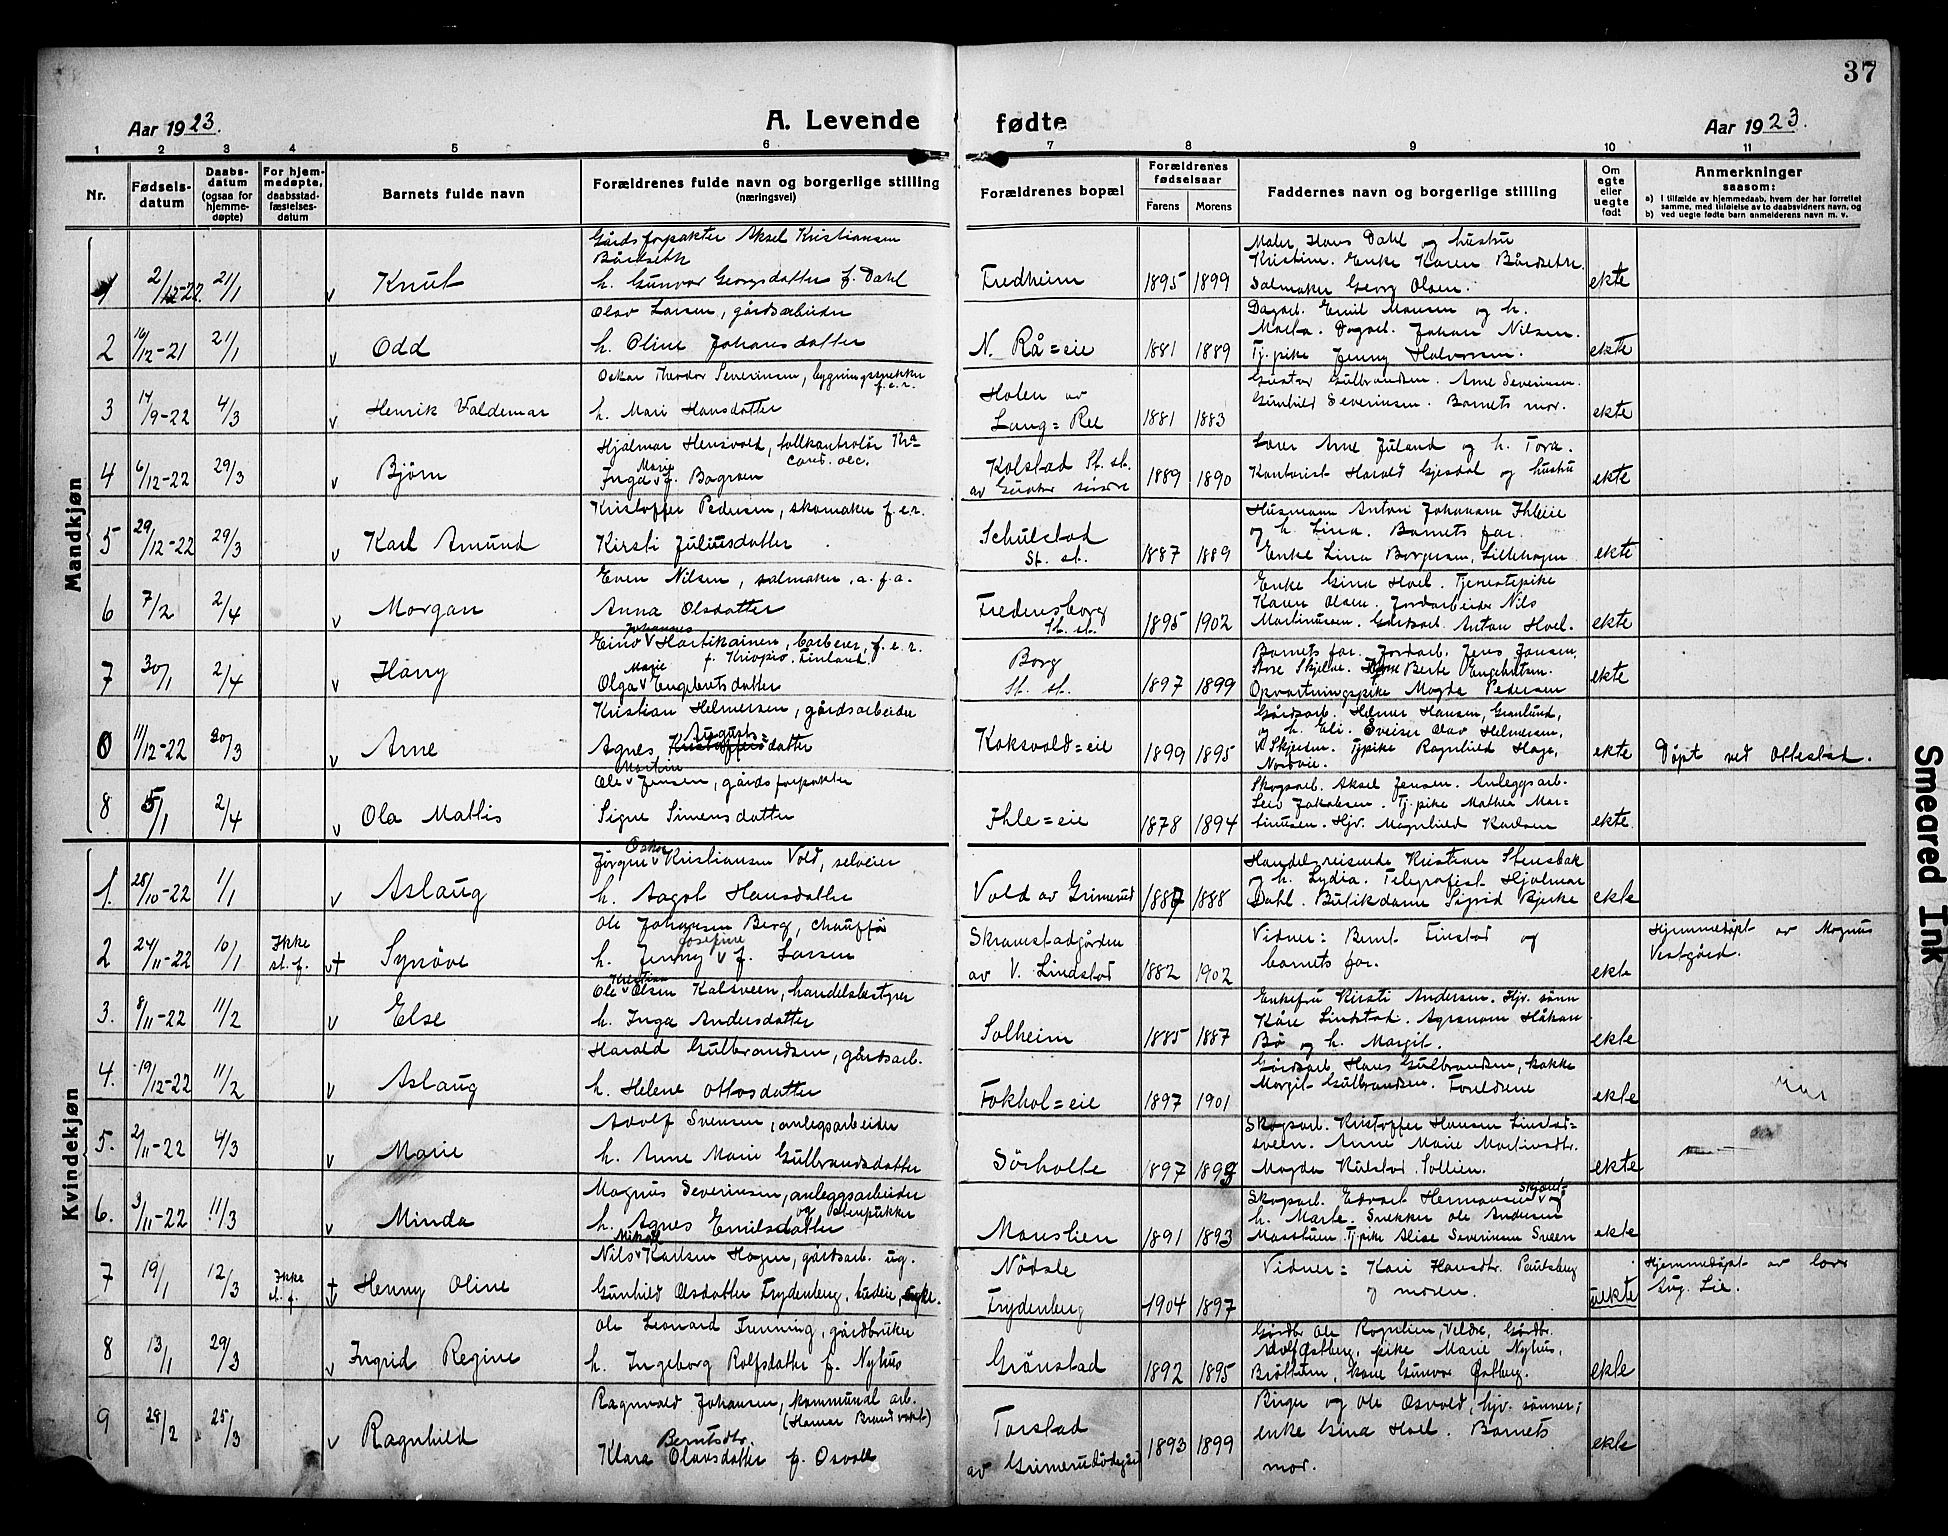 37
Aar 1923.
A. Levende
fødte
Aar 1923.
1 2 3 4 5 6 7 8 9 10 11
Nr.
Fødsels-
datum
Daabs-
datum
(ogsaa for
hjemme-
døpte)
For hjem-
medøpte,
daabsstad-
fæstelses-
datum
Barnets fulde navn
Forældrenes fulde navn og borgerlige stilling
(næringsvei)
Forældrenes bopæl
Forældrenes
fødselsaar
Farens
Morens
Faddernes navn og borgerlige stilling
Om
egte
eller
uegte
født
Anmerkninger
saasom:
a) I tilfælde av hjemmedaab, hvem der har forrettet
samme, med tilføielse av to daabsvidners navn, og
b) ved uegte fødte barn anmelderens navn m. v.
Mandkjøn
1 2/12-22 21/1 v Knut
Gårdsforpakter Aksel Kristiansen
Bårdseth
h. Gunvor Georgsdatter f. Dahl
Fredheim 1895 1899
Maler Hans Dahl og hustru
Kristine. Enke Karen Bårdseth.
Salmaker Georg Olsen.
ekte
2 16/12-21 21/1 v Odd
Olav Larsen, gårdsarbeider
h. Oline Johansdatter
N. Rå=eie 1881 1889
Dagarb. Emil Monsen og h.
Marta. Dagarb. Johan Nilsen.
Tj.pike Jenny Halvorsen.
ekte
3 14/9-22 4/3 v Henrik Valdemar
Oskar Theodor Severinsen, bygningssnekker
f.e.r.
h. Mari Hansdatter
Holen av
Lang=Ree 1881 1883
Gustav Gulbrandsen. Arne Severinsen.
Gunhild Severinsen. Barnets mor.
ekte
4 6/12-22 29/3 v Bjørn
Hjalmar Hensvold, tollkontrolør Kra
cand. oec.
Inga Marie f. Bagroen
Kolstad St. st.
av Gustar søndre 1889 1890
Lærer Arne Juland og h. Tora.
Kontorist Harald Gjesdal og hustru
ekte
5 29/12-22 29/3 v Karl Amund
Kristoffer Pedersen, skomaker f.e.r.
Kirsti Juliusdatter
Schulstad
St. st. 1887 1889
Husmann Anton Johansen Ihleeie
og h. Lina. Barnets far.
Enke Lina Borgersen, Lillehagen
ekte
6 7/2 2/4 v Morgan
Even Nilsen, salmaker, a.f.a.
Anna Olsdatter
Fredensborg
St. st. 1895 1902
Enke Gina Hoel. Tjenestepike
Karen Olsen. Jordarbeider Nils
Martinussen. Gårdsarb. Anton Hoel.
ekte
7 30/1 2/4 v Harry
Eino Johannes Hartikainen, barberer, f.e.r.
f. Kriopio. Finland
Olga Marie Engebretsdatter
Borg
St. st. 1897 1899
Barnets far. Jordarb. Jens Jansen,
Store Skjelve. Berte Engebretsen.
Opvartningspike Magda Pedersen
ekte
0 11/12-22 30/3 v Arne
Kristian Helmersen, gårdsarbeider
Agnes Augusts=datter
Koksvold=eie 1899 1895
Gårdsarb. Helmer Hansen, Granlund,
og h. Eli. Sveiser Olav Helmersen,
V. Skjesen. Tj.pike Ragnhild Hage,
Nordvie.
ekte
Døpt ved Ottestad.
8 5/1 2/4 v Ola Mattis
Ole Martin Jensen, gårdsforpakter
Signe Simensdatter
Ihle=eie 1878 1894
Skogsarb. Aksel Jensen. Anleggsarb.
Leiv Jakobsen. Tj.pike Mathea Mar=
tinusen. Hjv. Magnhild Karlsen
ekte.
Kvindekjøn
1. 28/10-22 1/1 v Aslaug
Jørgen Oskar Kristiansen Vold, selveier
h. Aagot Hansdatter
Vold av Grimerud 1887 1888
Handelsreisende Kristian Stensbak
og h. Lydia. Telegrafist Hjalmar
Dahl. Butikdame Sigrid Bjerke
ekte
2 24/11-22 10/1 Ikke
st. f. v+ Synøve
Ole Johansen Berg, chauffør
h. Jenny Josefine f. Larsen
Skramstadgården
av V. Lindstad 1882 1902
Vidner: Bernt Finstad og
barnets far.
ekte
Hjemmedøpt av Magnus
Vestgård.
3. 8/11-22 11/2 v Else
Ole Kristian Olsen Kalsveen, handelsbestyrer
h. Inga Andersdatter
Solheim 1885 1887
Enkefru Kirsti Andersen. Hjv. sønn
Kåre Lindstad. Agronom Håkon
Bø og h. Margit.
ekte
4. 19/12-22 11/2 v Aslaug
Harald Gulbrandsen, gårdsarb.
h. Helene Ottosdatter
Fokhol=eie 1897 1901
Gårdsarb. Hans Gulbrandsen, kokke
Margit Gulbrandsen. Foreldrene
ekte
5. 2/11-22 4/3 v Marie
Adolf Svensen, anlegsarbeider
h. Anne Marie Gulbrandsdatter
Sørholte 1897 1899
Skogsarb. Kristoffer Hansen Linstad=
sveen. Anne Marie Martinsdtr.
Magda Rulstad. Sollien.
ekte
6. 3/11-22 11/3 v Minda
Magnus Severinsen, anleggsarbeider
og stenpukker
h. Agnes Emilsdatter
Monslien 1891 1893
Skogsarb. Edvart Hermansen og
h. Marte. Snekker Ole Andersen
Masstuen. Tj.pike Alise Severinsen Sveen
ekte
7 19/1 12/3 Ikke
st. f. + v Henny Oline
Nils Mikael Karlsen Hagen, gårdsarb. ug.
Gunhild Olsdatter Frydenberg, budeie,
Nødsle
Frydenberg 1904 1897
Vidner: Kari Hansdtr. Paulsberg
og moren.
uekte
Hjemmedøpt av lærer
Aug. Lie.
8 13/1 29/3 v Ingrid Regine
Ole Leonard Fenning, gårdbruker
h. Ingeborg Rolfsdatter f. Nyhus
Grønstad 1892 1895
Gårdbr. Ole Rognlien, Veldre, Gårdbr.
Adolf Østberg, pike Marie Nyhus,
Brøttum, kone Gunvor Østberg.
ekte
9 28/2 25/3 v Ragnhild
Ragnvald Johansen, kommunal arb.
(Hamar Brandvæsen)
Klara Berntsdtr. Olavsdatter f. Osvold
Torstad
av Grimerudødegård 1893 1899
Birger og Ole Osvold, hjv. sønner;
enke Gina Hoel. Barnets
mor.
ekte
Smeared Ink